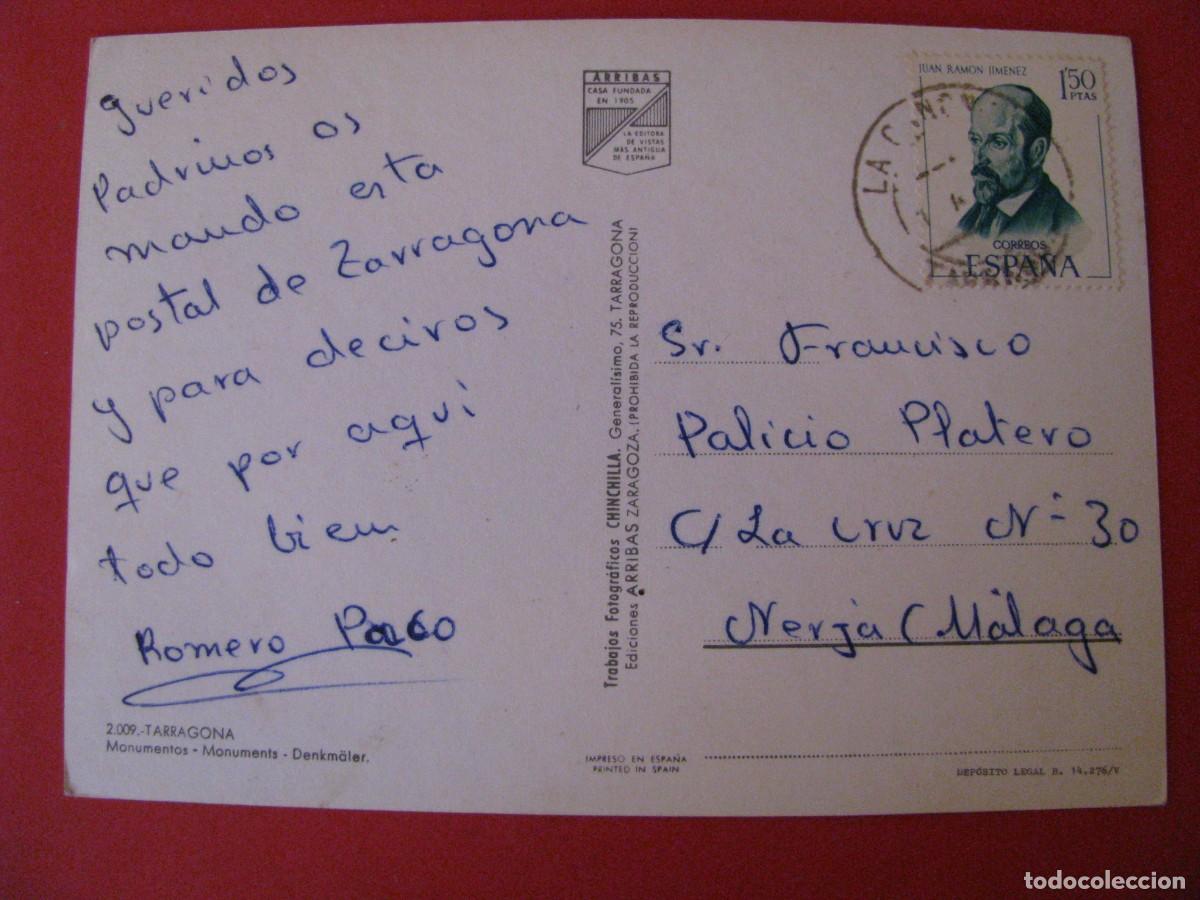 queridos
Padrinos os
mando esta
postal de Zarragona
y para deciros
que por aquí
todo bien
Romero Paco
2.009.-TARRAGONA
Monumentos - Monuments - Denkmäler.
ARRIBAS
CASA FUNDADA
EN 1905
LA EDITORA
DE VISTAS
MAS ANTIGUA
DE ESPAÑA
Trabajos Fotográficos CHINCHILLA. Generalísimo, 75. TARRAGONA
Ediciones ARRIBAS ZARAGOZA. (PROHIBIDA LA REPRODUCCION)
IMPRESO EN ESPAÑA
PRINTED IN SPAIN
JUAN RAMON JIMENEZ
1'50
PTAS
CORREOS
ESPAÑA
LA
Sr. Francisco
Palicio Platero
C/ La Cruz Nº 30
Nerja (Málaga
DEPÓSITO LEGAL B. 14.276/V
todocoleccion